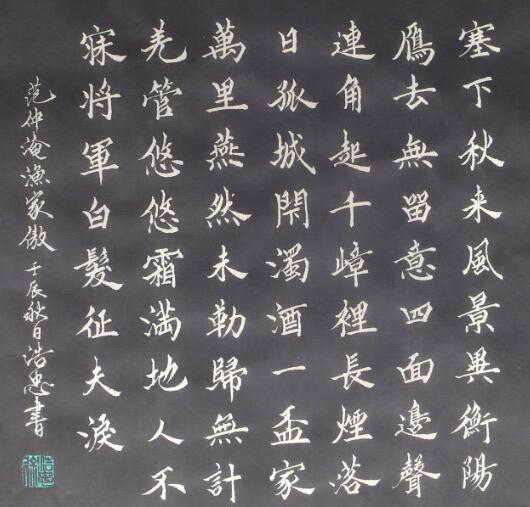 塞下秋来風景異衡陽
鴈去無留意四面邊聲
連角起千嶂裡長煙落
日孤城閉濁酒一盃家
萬里燕然未勒歸無計
羌管悠悠霜滿地人不
寐將軍白髮征夫淚
范仲淹漁家傲壬辰秋日浩忠書